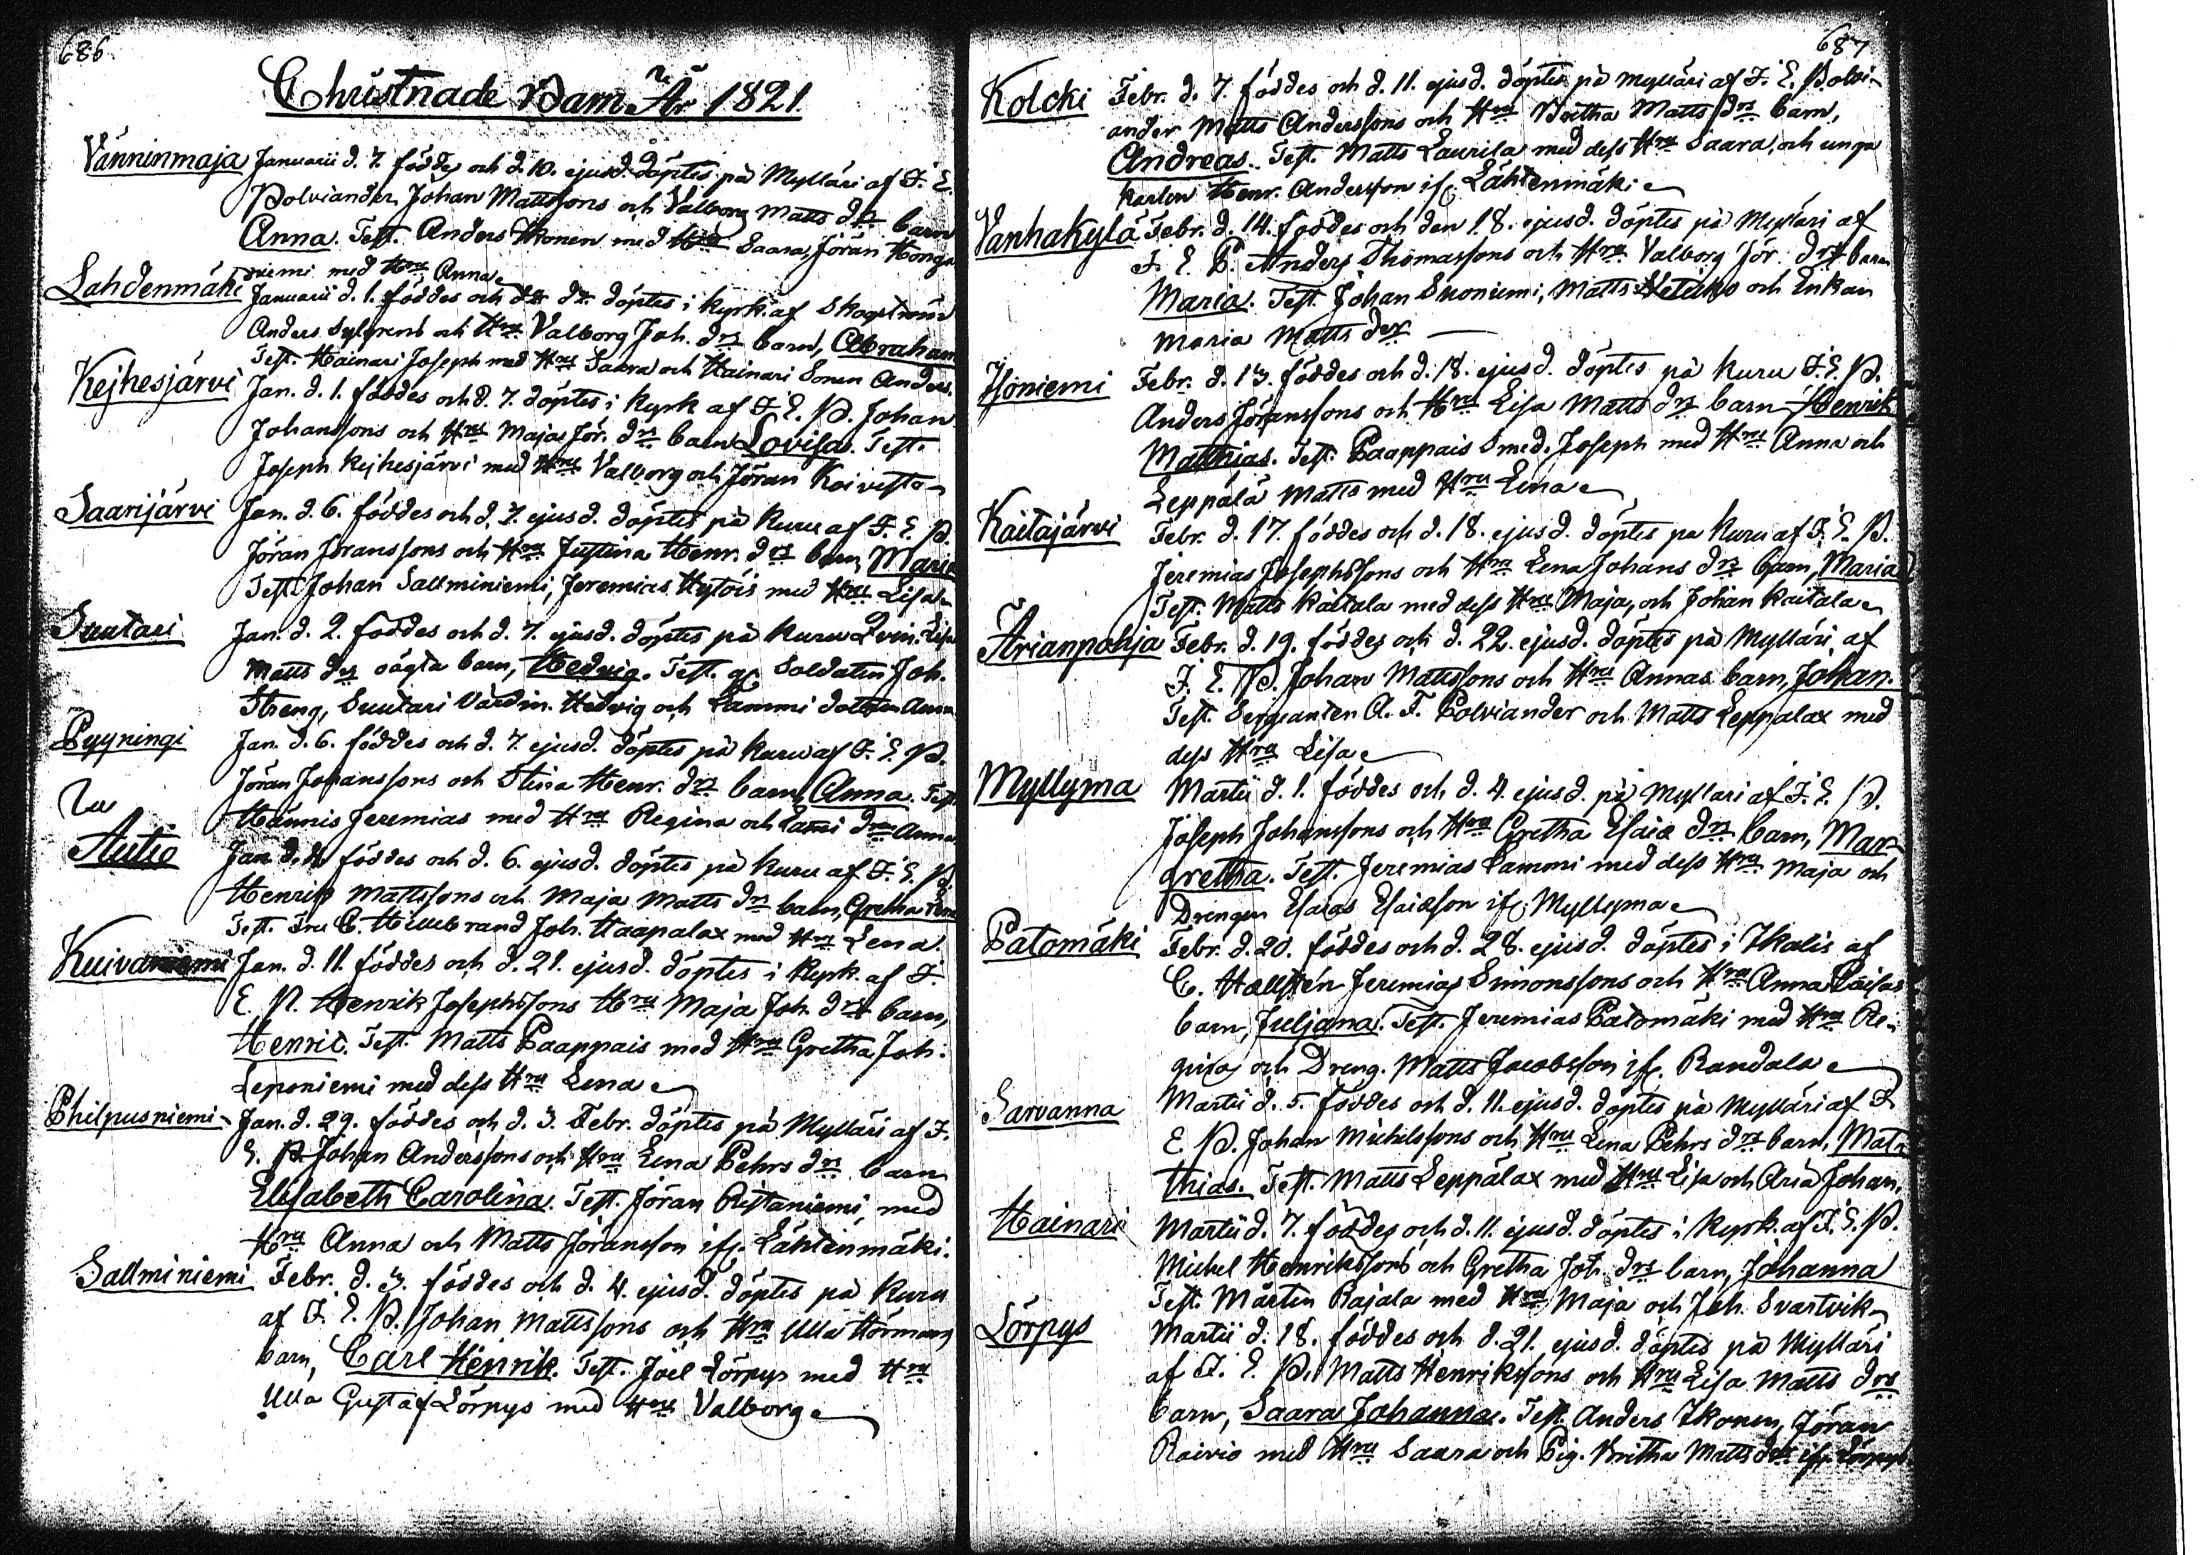 686
Christnade Barn År 1821.
Vänninmaja Januarii d. 7. föddes och d. 10. ejusd. döptes på Mylläri af F. E.
Polviander Johan Mattssons och Valborg Matts drs barn
Anna. Test. Anders Ikonen med Hru Saara, Jöran Honga
niemi med Hru Anna
Lahdenmäki Januarii d. 1. föddes och do do döptes i kyrk. af Skogström
Anders Sylfrens och Hrus Valborg Joh. drs barn, Abraham
Test. Hainari Joseph med Hru Saara och Hainari Sonen Anders.
Kejhesjärvi Jan. d. 1. föddes och d. 7. döptes i kyrk af F. E. P. Johan
Johanssons och Hrus Majas Jör. drs barn Lovisa. Test.
Joseph Kejhesjärvi med Hru Valborg och Jöran Koivisto
Saarijärvi Jan. d. 6. föddes och d. 7. ejusd. döptes på Kuru af F. E. P.
Jöran Jöranssons och Hrus Justina Henr. drs barn, Maria
Test. Johan Sallminiemi, Jeremias Hytöis med Hru Lisa
Suutari Jan. d. 2. föddes och d. 7. ejusd. döptes på Kuru Qvin. Lisa
Matts drs oägta barn, Hedvig. Test. gl. Soldaten Joh.
Streng, Suutari Värdin. Hedvig och Lammi dottren Anna
Pyyningi Jan. d. 6. föddes och d. 7. ejusd. döptes på Kuru af F. E. P.
Jöran Johanssons och Stina Henr. drs barn, Anna. Test.
Hännis Jeremias med Hru Regina och Lami drn Anna
Autio Jan. d. föddes och d. 6. ejusd. döptes på Kuru af F. E. P.
Henrik Mattssons och Maja Matts drs barn, Gretha
Test. Fru C. Hillebrand Joh. Haapalax med Hru Lena.
Kuivaniemi Jan. d. 11. föddes och d. 21. ejusd. döptes i kyrk. af F.
E. P. Henrik Josephssons Hrus Maja Joh. drs barn,
Henric. Test. Matts Paappais med Hru Gretha Joh.
Leponiemi med dess Hru Lena
Philpusniemi Jan. d. 29. föddes och d. 3. Febr. döptes på Mylläri af F.
E. P. Johan Anderssons och Hrus Lena Pehrs drs barn
Elisabeth Carolina. Test. Jöran Ristaniemi med
Hru Anna och Matts Jöransson ifr. Lähtenmäki.
Sallminiemi Febr. d. 3. föddes och d. 4. ejusd. döptes på Kuru
af F. E. P. Johan Mattssons och Hrus Ulla Hörmans
barn, Carl Henrik. Test. Joel Lörpys med Hru
Ulla Gustaf Lörpys med Hru Valborg
687
Kolcki Febr. d. 7. föddes och d. 11. ejusd. döptes på Mylläri af F. E. Polvi-
ander Matts Anderssons och Hrus Britha Matts drs barn,
Andreas. Test. Matts Laurila med dess Hru Saara, och unga
karlen Henr. Andersson if. Lähtenmäki
Vanhakylä Febr. d. 14. föddes och den 18. ejusd. döptes på Mylläri af
F. E. P. Anders Thomassons och Hrus Valborg Jör. drs barn
Maria. Test. Johan Suoniemi, Matts och Enkan
Maria Matts der
Isoniemi Febr. d. 13. föddes och d. 18. ejusd. döptes på Kuru F. E. P.
Anders Jöranssons och Hrus Lisa Matts drs barn Henrik
Matthias. Test. Paappais Smed. Joseph med Hru Anna och
Leppälä Matts med Hru Lena
Kaitajärvi Febr. d. 17. föddes och d. 18. ejusd. döptes på Kuru af F. E. P.
Jeremias Josephssons och Hrus Lena Johans drs barn, Maria
Test. Matts Kaitala med dess Hru Maja, och Johan Kaitala
Ärianpohja Febr. d. 19. föddes och d. 22. ejusd. döptes på Mylläri af
F. E. P. Johan Mattssons och Hrus Annas barn, Johan.
Test. Sergeanten A. F. Polviander och Matts Leppälax med
dess Hru Lisa
Myllyma Martii d. 1. föddes och d. 4. ejusd. på Myllari af F. E. P.
Joseph Johanssons och Hrus Gretha Esaiæ drs barn, Mar-
gretha. Test. Jeremias Lammi med dess Hru Maja och
Drengen Esaias Esaiæson if. Myllyma
Patomäki Febr. d. 20. föddes och d. 28. ejusd. döptes i Ikalis af
C. Hællstén Jeremias Simonssons och Hrus Anna Caisas
barn, Juljana. Test. Jeremias Patomäki med Hru Re-
gina och Dreng. Matts Jacobsson if. Randala
Sarvanna Martii d. 5. föddes och d. 11. ejusd. döptes på Mylläri af F.
E. P. Johan Michelssons och Hrus Lena Pehrs drs barn, Mat-
thias. Test. Matts Leppälax med Hru Lisa och Aria Johan.
Hainari Martii d. 7. föddes och d. 11. ejusd. döptes i kyrk. af F. E. P.
Michel Henrikssons och Gretha Joh. drs barn, Johanna
Test. Mårten Rajala med Hru Maja och Joh. Svartvik
Lörpys Martii d. 18. föddes och d. 21. ejusd. döptes på Mylläri
af F. E. P. Matts Henrikssons och Hrus Lisa Matts drs
barn, Saara Johanna. Test. Anders Ikonen, Jöran
Roivio med Hru Saara och Pig. Britha Matts der ifr. Lörpys